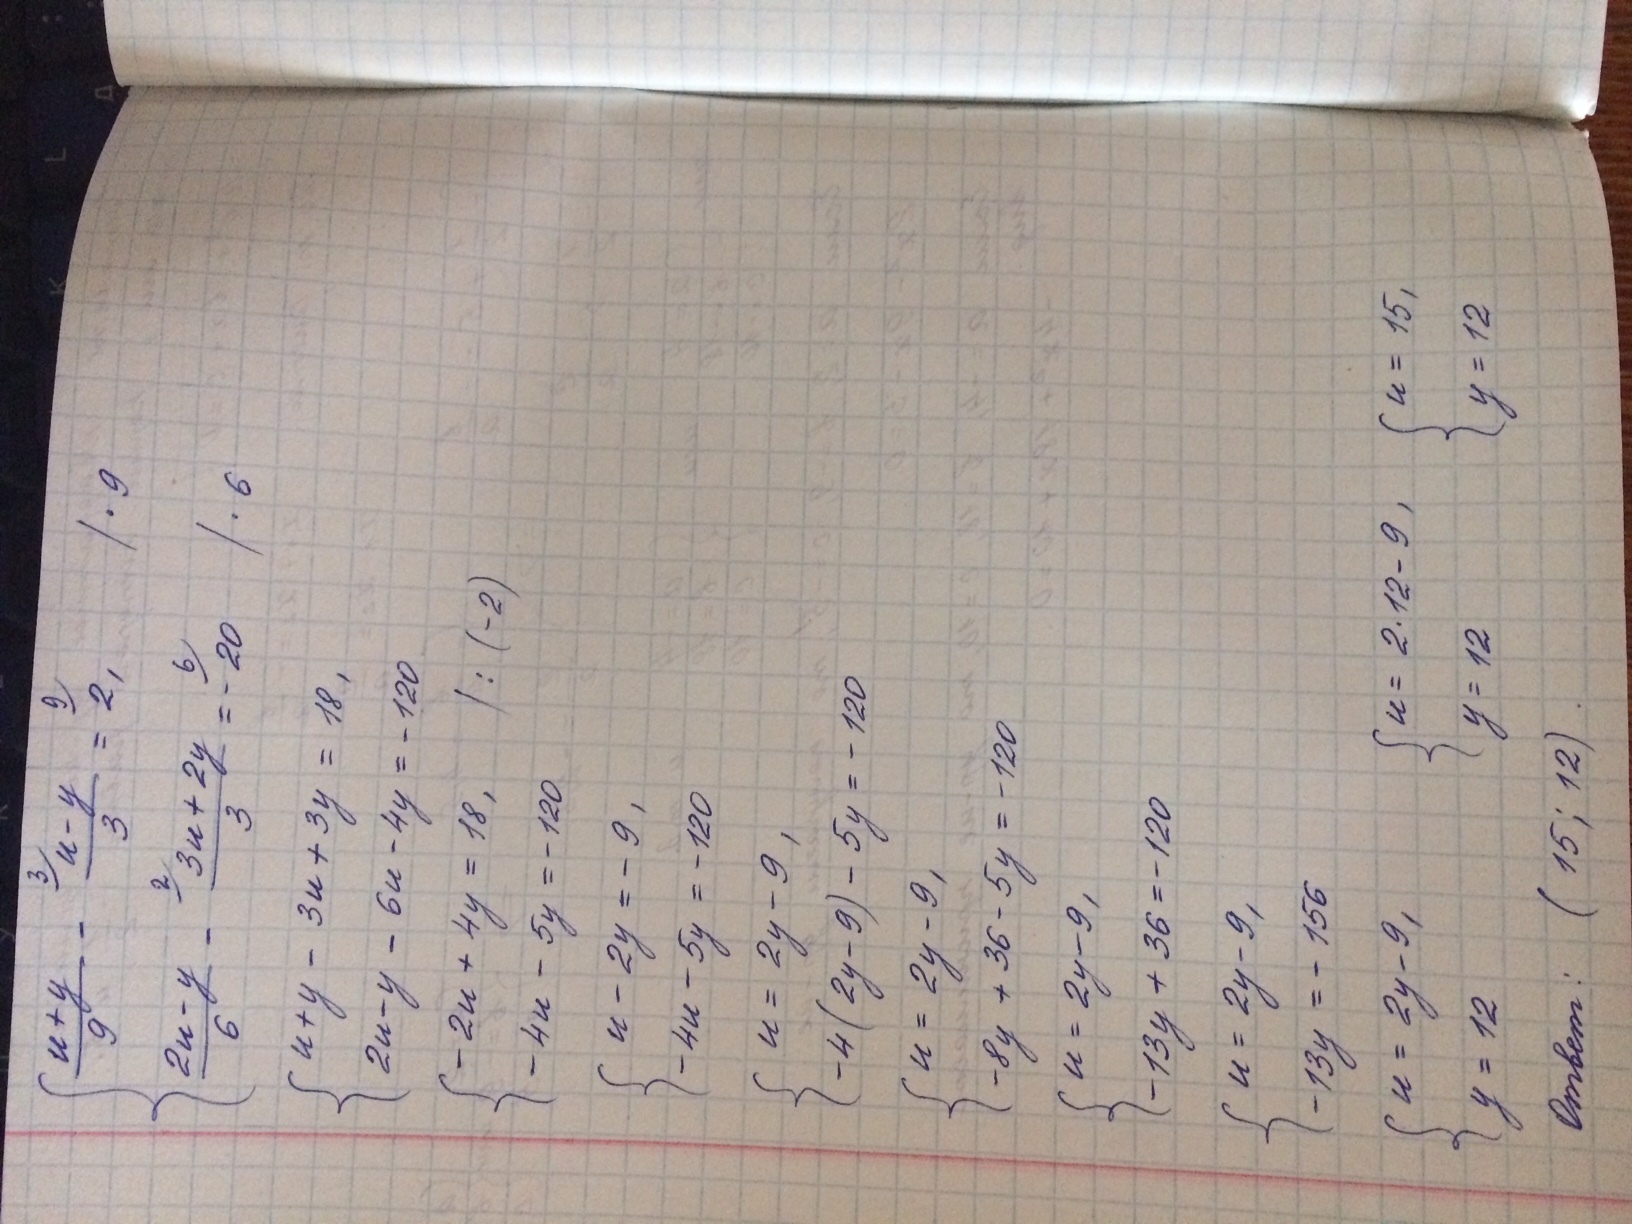 { u+y/9 - u-y/3 = 2, | · 9
2u-y/6 - 3u+2y/3 = -20 | · 6
{ u+y - 3u+3y = 18,
2u-y - 6u-4y = -120
{ -2u + 4y = 18, | : (-2)
-4u - 5y = -120
{ u - 2y = -9,
-4u - 5y = -120
{ u = 2y - 9,
-4(2y-9) - 5y = -120
{ u = 2y - 9,
-8y + 36 - 5y = -120
{ u = 2y - 9,
-13y + 36 = -120
{ u = 2y - 9,
-13y = -156
{ u = 2y - 9, { u = 2·12 - 9, { u = 15,
y = 12 y = 12 y = 12
Ответ: (15; 12).